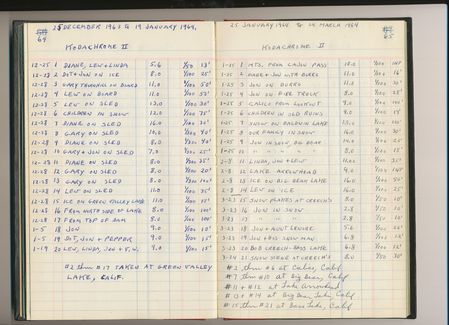 25 DECEMBER 1963 TO 19 JANUARY 1964
64
KODACHROME II
12-25 1 DIANE, LEW + LINDA 5.6 1/50 13'
12-28 2 DOT + JON ON ICE 8.0 1/100 25'
12-28 3 GARY THROWING ON BOARD 11.0 1/100 50'
12-28 4 LEW ON BOARD 11.0 1/100 50'
12-28 5 LEW ON SLED 13.0 1/100 30'
12-28 6 CHILDREN IN SNOW 12.0 1/100 75'
12-28 7 DIANE ON SLED 16.0 1/100 30'
12-28 8 GARY ON SLED 10.0 1/100 40'
12-28 9 DIANE ON SLED 8.0 1/100 40'
12-28 10 GARY + JON ON SLED 7.0 1/100 25'
12-28 11 DIANE ON SLED 8.0 1/100 35'
12-28 12 GARY ON SLED 8.0 1/100 20'
12-28 13 GARY ON SLED 8.0 1/100
12-28 14 LEW ON SLED 11.0 1/100 35'
12-28 15 ICE ON GREEN VALLEY LAKE 11.0 1/100 15'
12-28 16 FROM NORTH SIDE OF LAKE 8.0 1/100 100'
12-28 17 FROM TOP OF DAM 8.0 1/100 100'
1-5 18 JON 9.0 1/100 10'
1-5 19 DOT, JON + PEPPER 9.0 1/100 15'
1-19 20 LEW, LINDA, JON + 9.0 1/100 15'
#2 thru #17 TAKEN AT GREEN VALLEY
LAKE, CALIF.
25 JANUARY 1964 TO 24 MARCH 1964
65
KODACHROME II
1-25 1 MTS. FROM CAJON PASS 12.0 1/100 INF
1-25 2 GARY + JON WITH BURRO 11.0 1/100 16'
1-25 3 JON ON BURRO 11.0 1/100 30'
1-25 4 JON ON FIRE TRUCK 8.0 1/100 25'
1-25 5 CALICO FROM LOOKOUT 9.0 1/100 100'
1-25 6 CHILDREN IN OLD RUINS 9.0 1/100 15'
1-25 7 SNOW ON BALDWIN LAKE 13.0 1/100 100'
1-25 8 OUR FAMILY IN SNOW 16.0 1/100 30'
1-25 9 JON IN SNOW, BIG BEAR 14.0 1/100 25'
1-25 10 " " " " 8.0 1/100 15'
2-8 11 LINDA, JON + LEW 11.0 1/100 35'
2-8 12 LAKE ARROWHEAD 9.0 1/100 100'
2-8 13 ICE ON BIG BEAR LAKE 16.0 1/100 50'
2-8 14 LEW ON ICE 16.0 1/100 25'
3-23 15 SNOW FLAKES AT CREECH'S 8.0 1/50
3-23 16 JON IN SNOW 2.8 1/50 10'
3-23 17 " " " 2.8 1/50 10'
3-23 18 JON + AUNT LENORE 5.6 1/50
3-23 19 JON + HIS SNOW MAN 6.8 1/50 12'
3-23 20 BOB CREECH - BASS LAKE 6.8 1/50 12'
3-24 21 SNOW SCENE AT CREECH'S 8.0 1/50 30'
#2 thru #6 at Calico, Calif
#7 thru #10 at Big Bear, Calif
#11 + #12 at Lake Arrowhead
#13 + #14 at Big Bear Lake, Calif
#15 thru #21 at Bass Lake, Calif